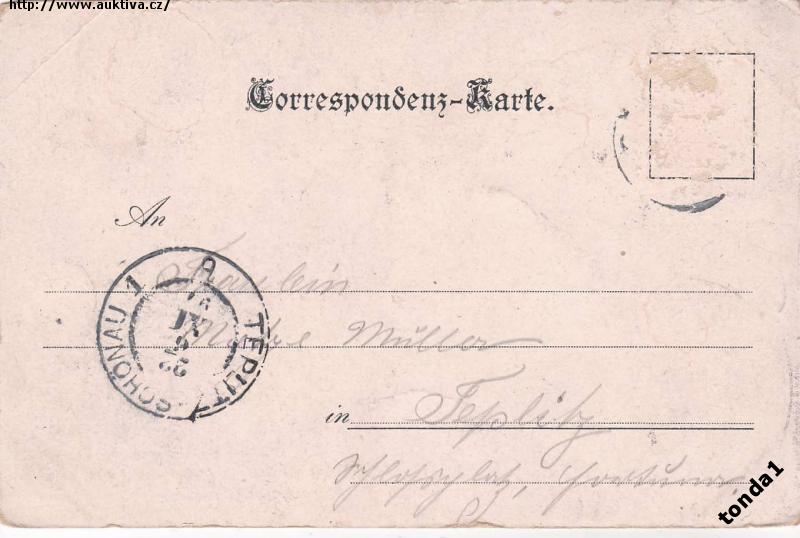 http://www.auktiva.cz/
Correspondenz-Karte.
An
Fräulein
Müller
TEPLITZ-SCHÖNAU 1
in Teplitz
Schlossplatz,
tonda1